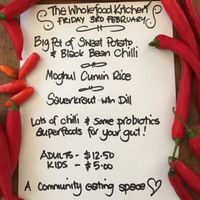 The Wholefood Kitchen
FRIDAY 3RD FEBRUARY
Big Pot of Sweet Potato
& Black Bean Chilli
Moghul Cumin Rice
Sauerkraut with Dill
Lots of chilli & some probiotics
superfoods for your gut!
ADULTS - $12.50
KIDS - $5.00
A community eating space